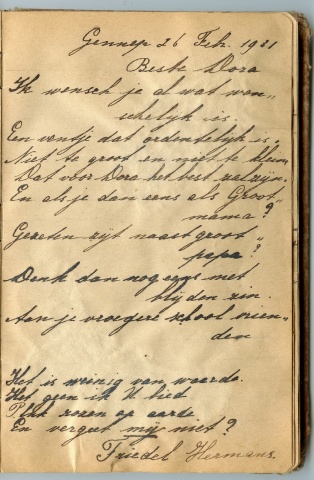 Gennep 26 Feb. 1921
Beste Dora
Ik wensch je al wat wen„
schelijk is.
Een ventje dat ordentelijk is.
Niet te groot en niet te klein
Dat voor Dora het best zal zijn.
En als je dan eens als Groot„
mama?
Gezeten zijt naast groot„
papa?
Denk dan nog eens met
blijden zin.
Aan je vroegere school vrien„
den
Het is weinig van waarde.
Het geen ik U bied
Pluk rozen op aarde
En vergeet mij niet?
Friedel Hermans.